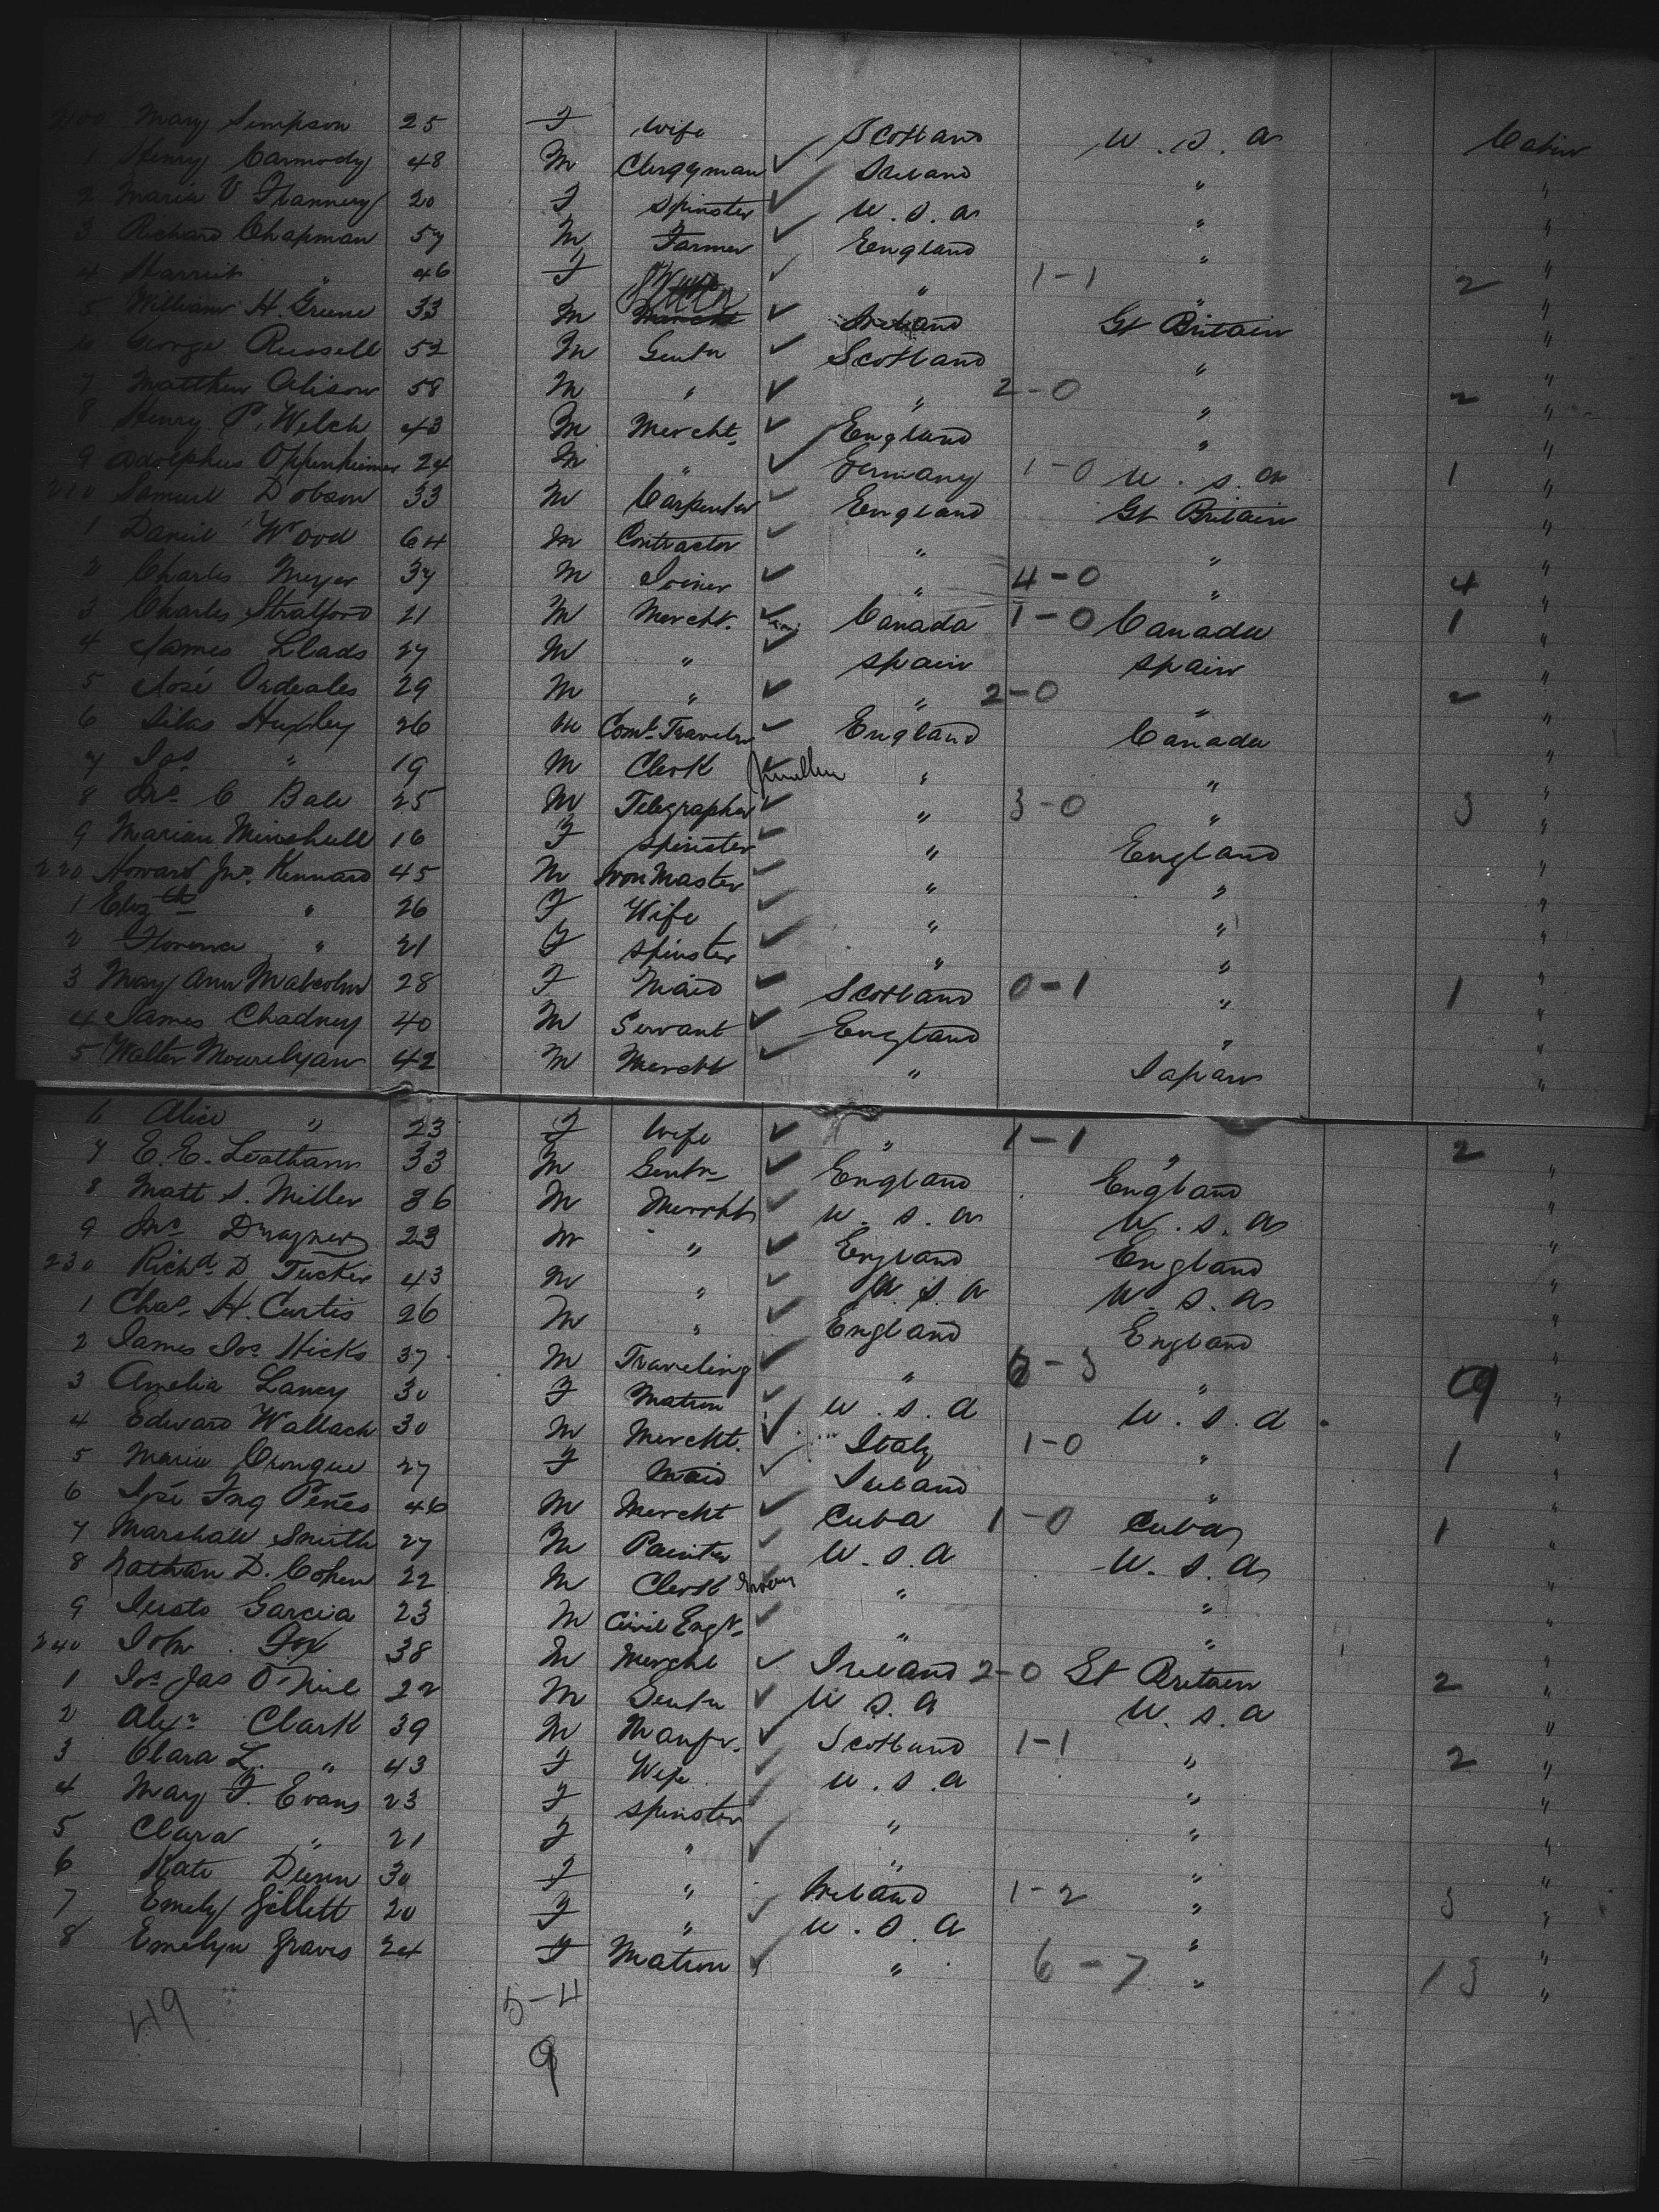 200 Mary Simpson 25 F Wife Scotland U.S.A Cabin
1 Henry Carmody 48 M Clergyman ✓ Ireland " "
2 Maria V Flannery 20 F Spinster ✓ U.S.A " "
3 Richard Chapman 57 M Farmer ✓ England " "
4 Harriet " 46 F ✓ " 1-1 " 2 "
5 William H. Greene 33 M ✓ Ireland Gt Britain "
6 George Russell 52 M Gentn ✓ Scotland " "
7 Matthew Alison 58 M " ✓ " 2-0 " 2 "
8 Henry P. Welch 43 M Mercht ✓ England " "
9 Adolphus Oppenheimer 24 M " ✓ Germany 1-0 U.S.A 1 "
210 Samuel Dobson 33 M Carpenter ✓ England Gt Britain "
1 Daniel Wood 64 M Contractor ✓ " " "
2 Charles Meyer 37 M Joiner ✓ " 4-0 " 4 "
3 Charles Stratford 21 M Mercht. ✓ Canada 1-0 Canada 1 "
4 James Llads 27 M " ✓ Spain Spain "
5 José Ordeales 29 M " ✓ " 2-0 " 2 "
6 Silas Huxley 26 M Coml Traveler ✓ England Canada "
7 Jos " 19 M Clerk ✓ " " "
8 Jno C Bale 25 M Telegrapher ✓ " 3-0 " 3 "
9 Marian Minshull 16 F Spinster ✓ " England "
220 Howard Jno. Kennard 45 M Iron Master ✓ " " "
1 Elizth " 26 F Wife ✓ " " "
2 Florence " 21 F Spinster ✓ " " "
3 May Ann Malcolm 28 F Maid ✓ Scotland 0-1 " 1 "
4 James Chadney 40 M Servant ✓ England " "
5 Walter Mourilyan 42 M Mercht ✓ " Japan "
6 Alice " 23 F Wife ✓ " 1-1 " 2 "
7 E. E. Leatham 33 M Gentn ✓ England England "
8 Matt S. Miller 36 M Mercht ✓ U.S.A U.S.A "
9 Jno 23 M " ✓ England England "
230 Richd D Tucker 43 M " ✓ U.S.A U.S.A "
1 Chas. H. Curtis 26 M " ✓ England England "
2 James Jos Hicks 37 M Traveling ✓ " - 3 " 9 "
3 Amelia Laney 30 F Matron ✓ U.S.A U.S.A "
4 Edward Wallach 30 M Mercht. ✓ Italy 1-0 " 1 "
5 Maria 27 F Maid ✓ Ireland " "
6 José Peñes 46 M Mercht ✓ Cuba 1-0 Cuba 1 "
7 Marshall Smith 27 M Painter ✓ U.S.A U.S.A "
8 Nathan D. Cohen 22 M Clerk ✓ " " "
9 Justo Garcia 23 M Civil Engr. ✓ " " "
240 John Fox 38 M Mercht ✓ Ireland 2-0 Gt Britain 2 "
1 Jos Jas O'Neil 22 M Gentn ✓ U.S.A U.S.A "
2 Alexr Clark 39 M Manfr. ✓ Scotland 1-1 " 2 "
3 Clara L. " 43 F Wife ✓ U.S.A " "
4 Mary F. Evans 23 F Spinster ✓ " " "
5 Clara " 21 F " ✓ " " "
6 Kate Dunn 30 F " ✓ Ireland 1-2 " 3 "
7 Emely Gillett 20 F " ✓ U.S.A " "
8 Emelyn Graves 24 F Matron ✓ " 6-7 " 13 "
49 5-4
9